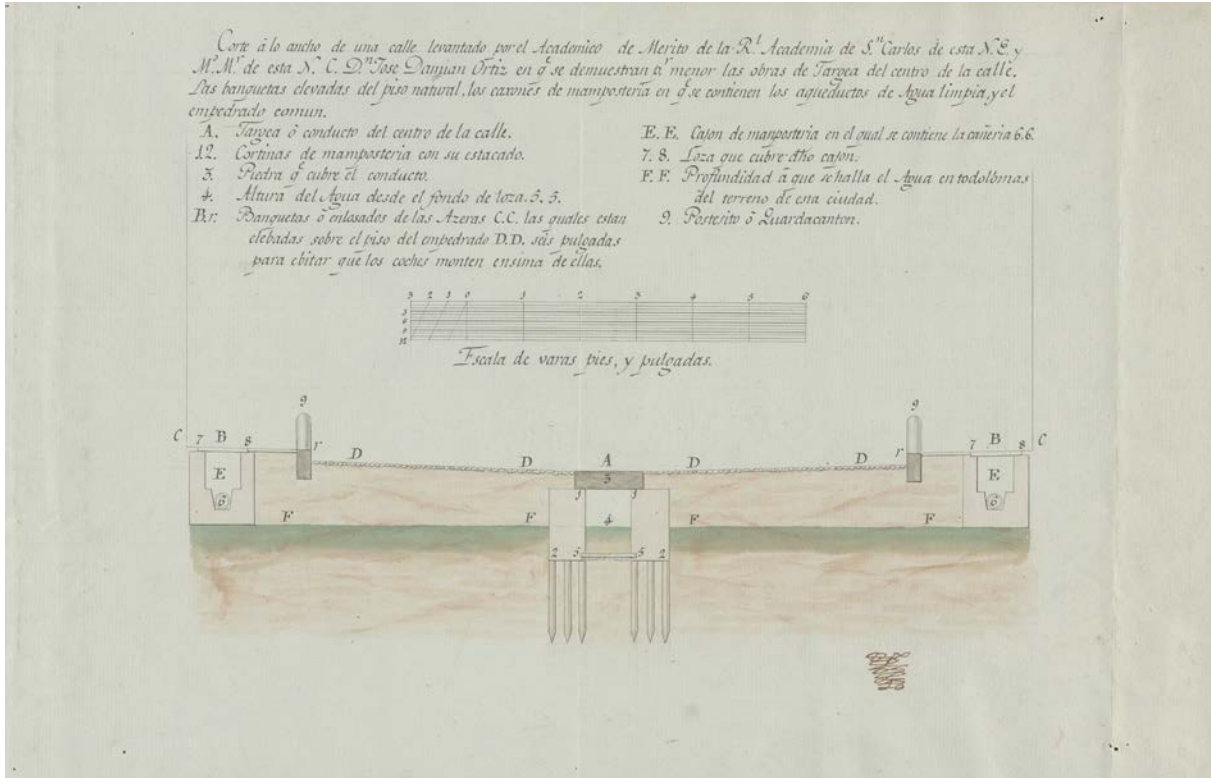 Corte â lo ancho de una calle levantado por el Academico de Merito de la R.l Academia de S.n Carlos de esta N. E. y
M.o M.r de esta N. C. D.n Jose Damian Ortiz en q.e se demuestran p.r menor las obras de Targea del centro de la calle.
Las banquetas elevadas del piso natural, los caxones de mamposteria en q.e se contienen los aqueductos de Agua limpia, y el
empedrado comun.
A. Targea ô conducto del centro de la calle.
1.2. Cortinas de mamposteria con su estacado.
3. Piedra q.e cubre el conducto.
4. Altura del Agua desde el fondo de loza. 5. 5.
B.r. Banquetas ô enlosados de las Azeras C.C. las quales estan
elebadas sobre el piso del empedrado D.D. seis pulgadas
para ebitar que los coches monten ensima de êllas.
E. E. Cajon de manposteria en el qual se contiene la cañeria 6.6.
7. 8. Loza que cubre dho cajon.
F. F. Profundidad â que se halla el Agua en todo lo mas
del terreno de esta ciudad.
9. Postesito ô Guardacanton.
3 2 1 0 1 2 3 4 5 6
3
6
9
12
Escala de varas pies, y pulgadas.
9 9
C 7 B 8 r D D A D D r 7 B 8 C
E 3 E
6 1 1 6
F F 4 F F
2 5 5 2